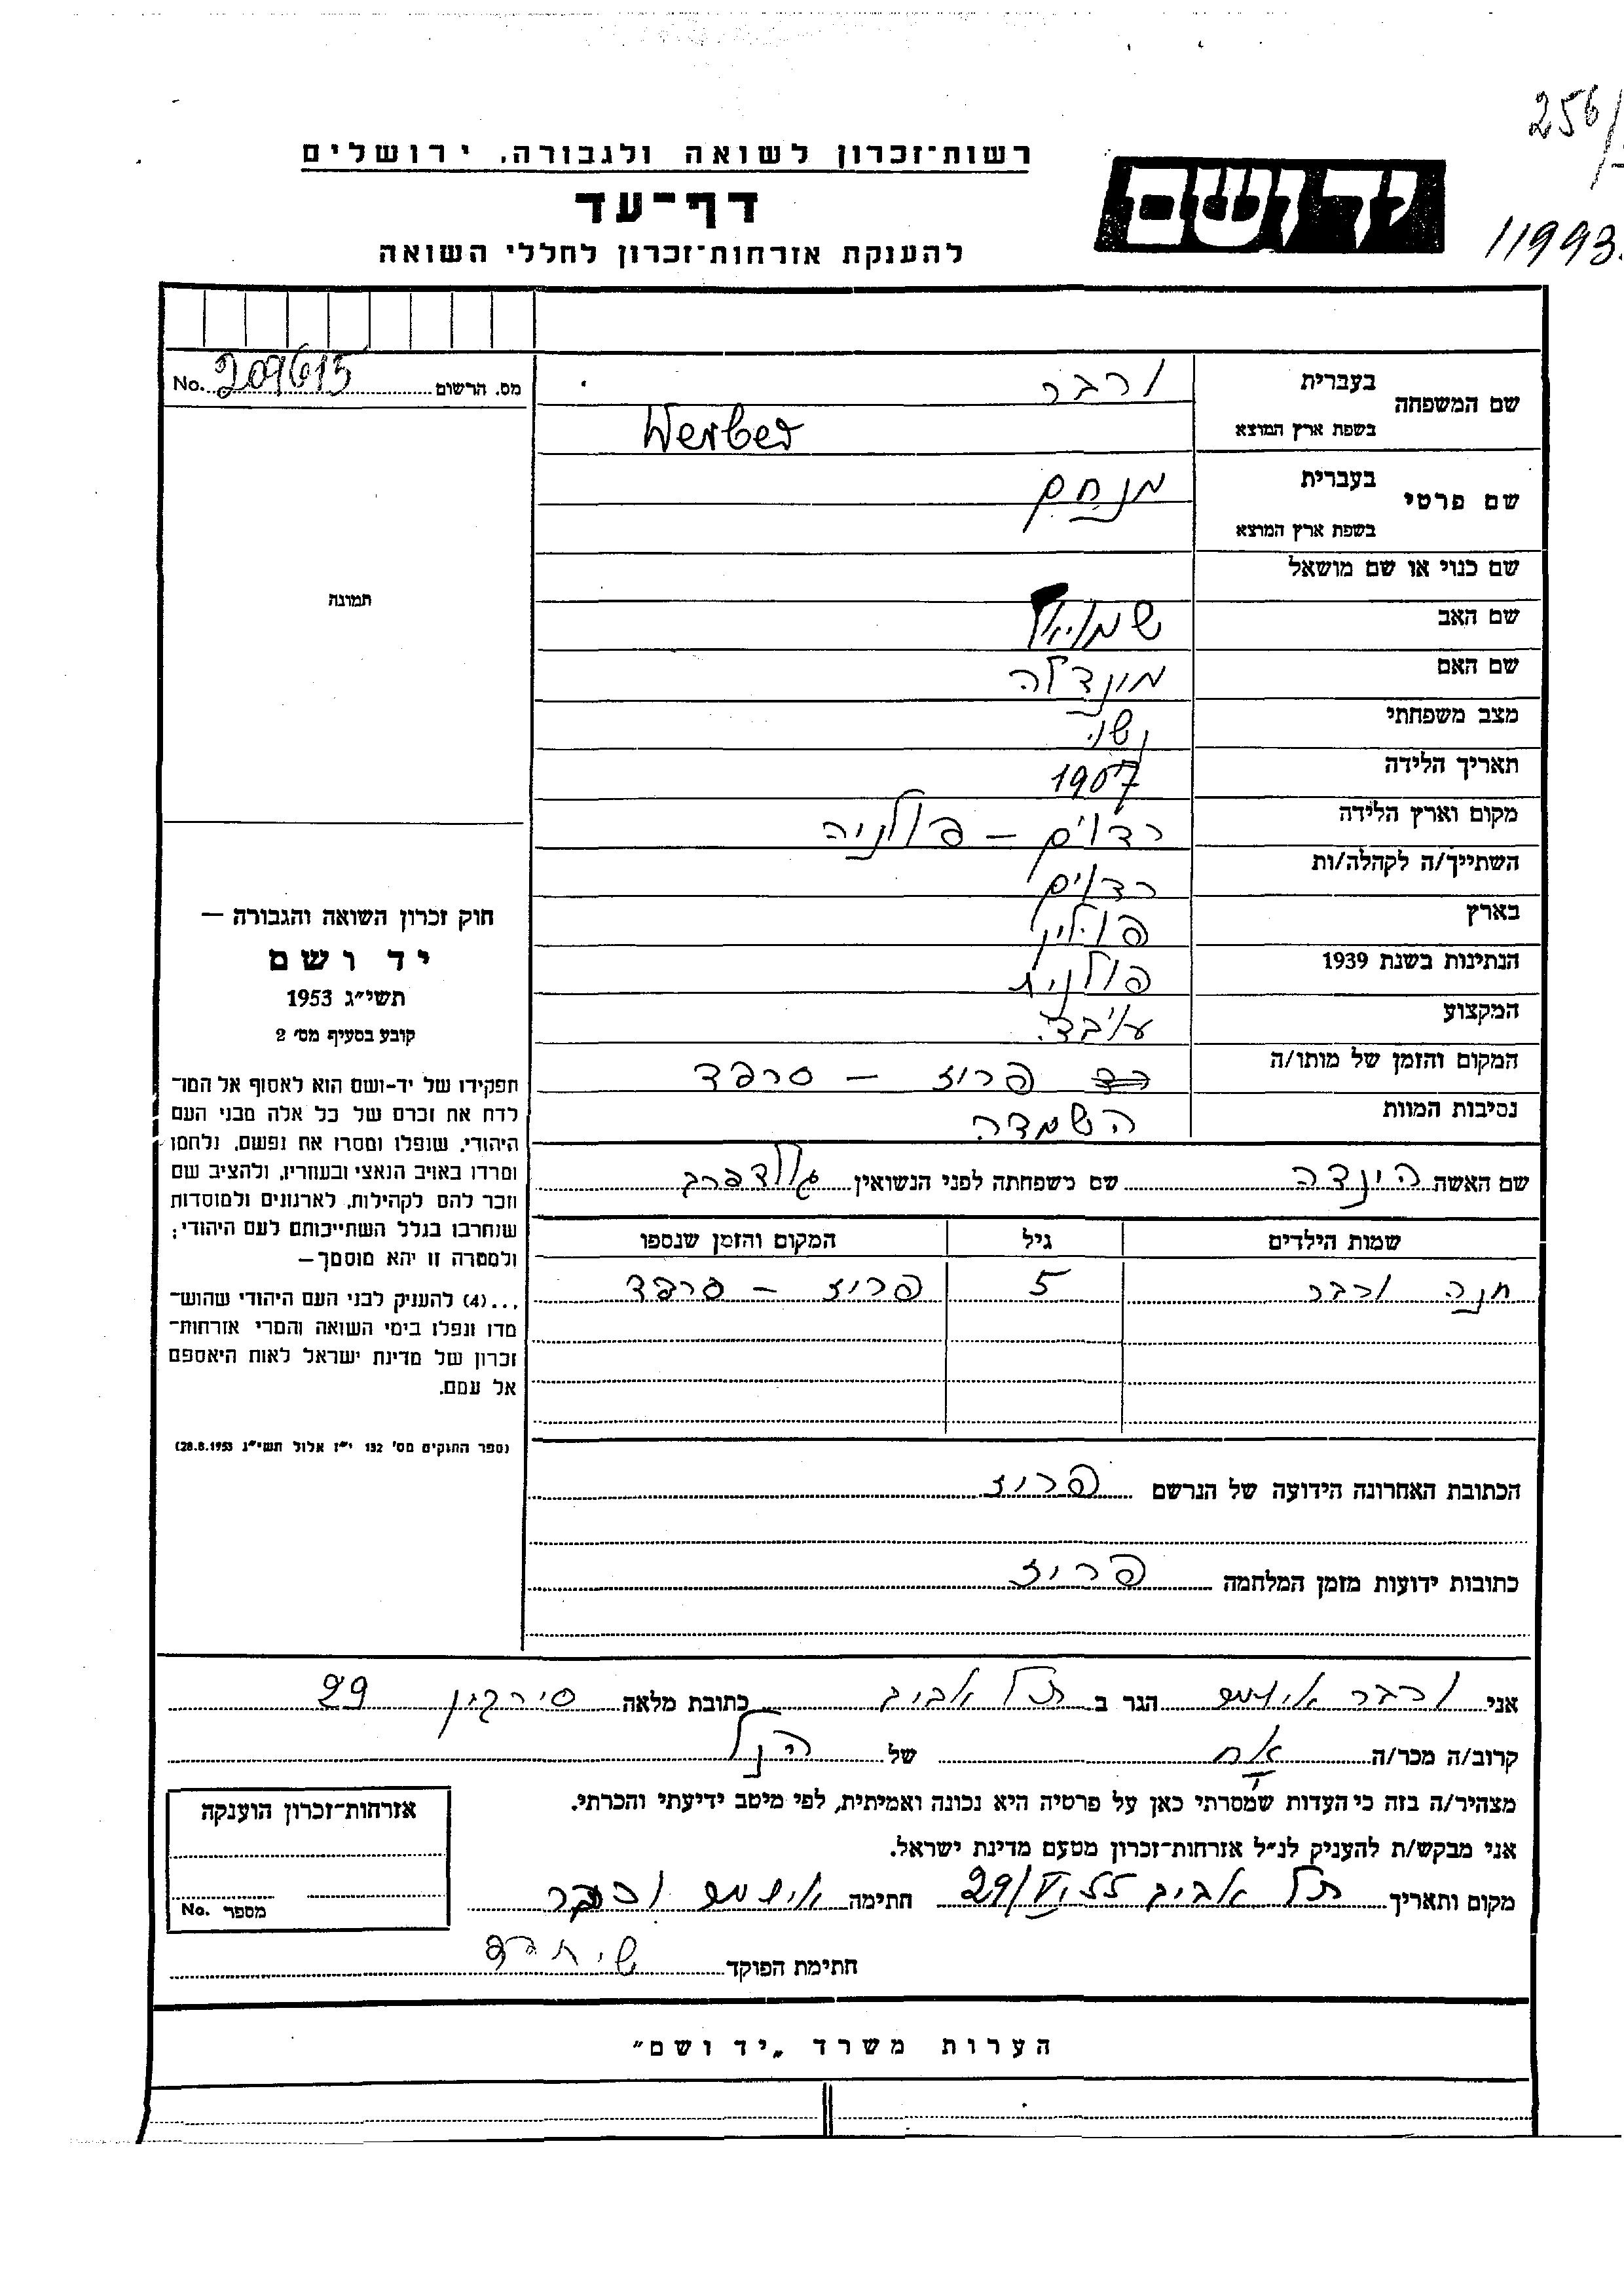 256/
11993
רשות־זכרון לשואה ולגבורה, ירושלים
דף־עד
להענקת אזרחות־זכרון לחללי השואה
יד ושם
מס. הרשום No. 209615
שם המשפחה
בעברית ורבר
בשפת ארץ המוצא Werber
שם פרטי
בעברית מנחם
בשפת ארץ המוצא
שם כנוי או שם מושאל
שם האב שמואל
שם האם מינדלה
מצב משפחתי נשוי
תאריך הלידה 1907
מקום וארץ הלידה רדוים – פולניה
השתייך/ה לקהלה/ות רדוים
בארץ פולין
הנתינות בשנת 1939 פולנית
המקצוע
המקום והזמן של מותו/ה פריז – סרפד
נסיבות המוות השמדה
שם האשה הינדה שם משפחתה לפני הנשואין גולדפרב
שמות הילדים גיל המקום והזמן שנספו
חנה ורבר 5 פריז – סרפד
הכתובת האחרונה הידועה של הנרשם פריז
כתובות ידועות מזמן המלחמה פריז
תמונה
חוק זכרון השואה והגבורה —
יד ושם
תשי״ג 1953
קובע בסעיף מס׳ 2
תפקידו של יד-ושם הוא לאסוף אל המו־
לדת את זכרם של כל אלה מבני העם
היהודי, שנפלו ומסרו את נפשם, נלחמו
ומרדו באויב הנאצי ובעוזריו, ולהציב שם
וזכר להם לקהילות, לארגונים ולמוסדות
שנחרבו בגלל השתייכותם לעם היהודי;
ולמטרה זו יהא מוסמך—
...(4) להעניק לבני העם היהודי שהוש־
מדו ונפלו בימי השואה והמרי אזרחות־
זכרון של מדינת ישראל לאות היאספם
אל עמם.
(ספר החוקים מס׳ 132 י״ז אלול תשי״ג 28.8.1953)
אני ורבר הגר ב תל אביב כתובת מלאה סירקין 29
קרוב/ה מכר/ה אח של הנ״ל
מצהיר/ה בזה כי העדות שמסרתי כאן על פרטיה היא נכונה ואמיתית, לפי מיטב ידיעתי והכרתי.
אני מבקש/ת להעניק לנ״ל אזרחות־זכרון מטעם מדינת ישראל.
מקום ותאריך תל אביב 29/VI 55 חתימה ורבר
חתימת הפוקד
אזרחות־זכרון הוענקה
מספר No.
הערות משרד „יד ושם״